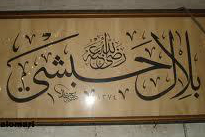 بلال حبشي
رضي الله عنه
١٣٧٤
alomari